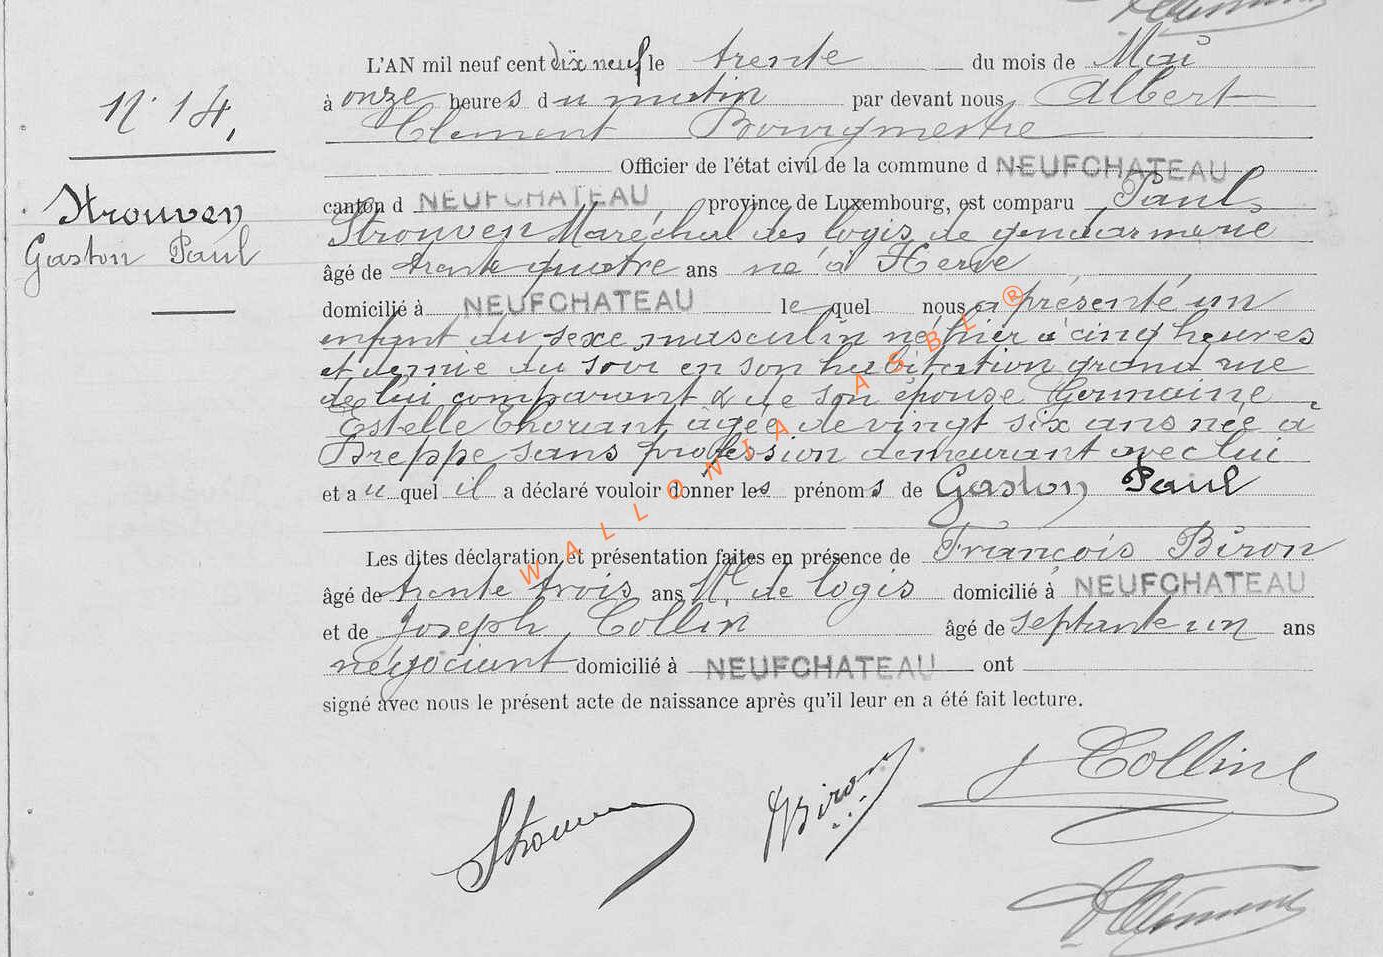 N° 14,
Strouven
Gaston Paul
L'AN mil neuf cent dix neuf le trente du mois de Mai
à onze heures du matin par devant nous Albert
Clement Bourgmestre
Officier de l'état civil de la commune d NEUFCHATEAU
canton d NEUFCHATEAU province de Luxembourg, est comparu Paul
Strouven Maréchal des logis de gendarmerie
âgé de trente quatre ans né à Herve
domicilié à NEUFCHATEAU le quel nous a présenté un
enfant du sexe masculin né hier à cinq heures
et demie du soir en son habitation grand rue
de lui comparant & de son épouse Germaine
Estelle Thoriant âgée de vingt six ans née à
Breppe sans profession demeurant avec lui
et au quel il a déclaré vouloir donner les prénoms de Gaston Paul
Les dites déclaration et présentation faites en présence de François Biron
âgé de trente trois ans Ml de logis domicilié à NEUFCHATEAU
et de Joseph Collin âgé de septante un ans
négociant domicilié à NEUFCHATEAU ont
signé avec nous le présent acte de naissance après qu'il leur en a été fait lecture.
WALLONIA ASBL ®
Strouven
Biron
J Collin
A Clément